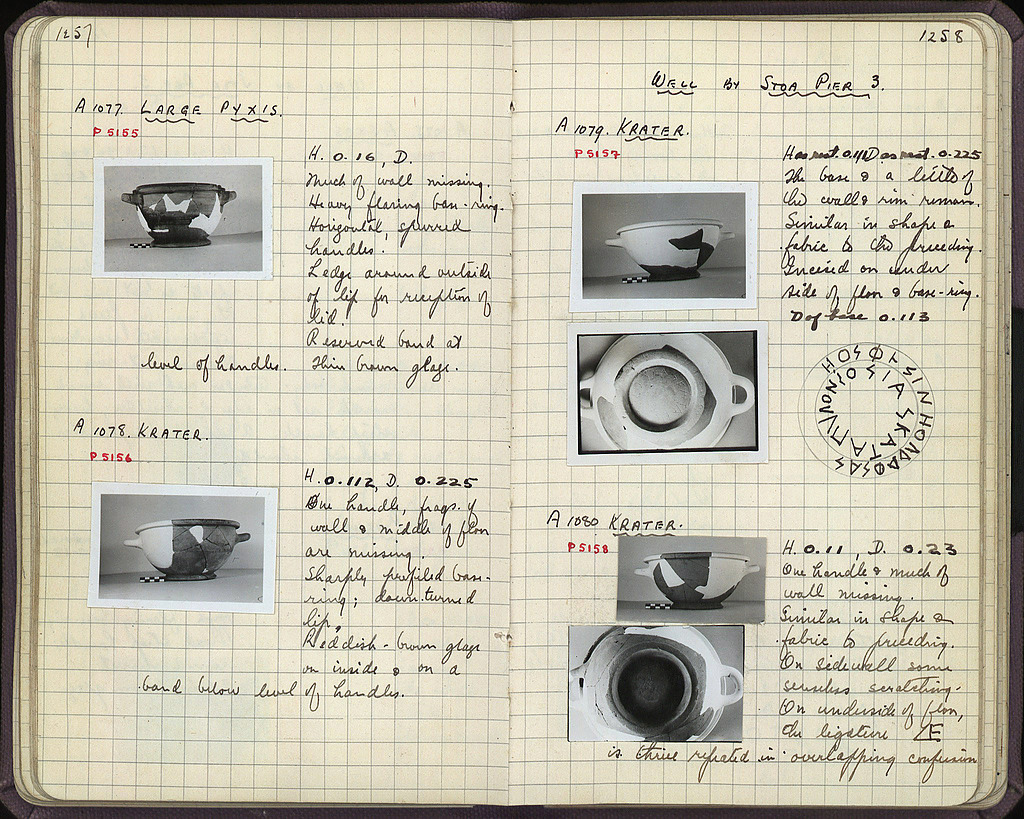 1257
A 1077. LARGE PYXIS.
P 5155
H. 0.16, D.
Much of wall missing.
Heavy flaring base-ring.
Horizontal, spurred
handles.
Ledge around outside
of lip for reception of
lid.
Reserved band at
level of handles. Thin brown glaze.
A 1078. KRATER.
P 5156
H. 0.112, D. 0.225
One handle, frags. of
wall & middle of floor
are missing.
Sharply profiled base-
ring; down-turned
lip.
Reddish-brown glaze
on inside & on a
band below level of handles.
1258
WELL BY STOA PIER 3.
A 1079. KRATER.
P 5157
H as rest. 0.11 D as rest. 0.225
The base & a little of
the wall & rim remain.
Similar in shape &
fabric to the preceding.
Incised on under
side of floor & base-ring.
D of base 0.113
A 1080 KRATER.
P 5158
H. 0.11, D. 0.23
One handle & much of
wall missing.
Similar in shape &
fabric to preceding.
On sidewall some
senseless scratching.
On underside of floor,
the ligature
is thrice repeated in overlapping confusion